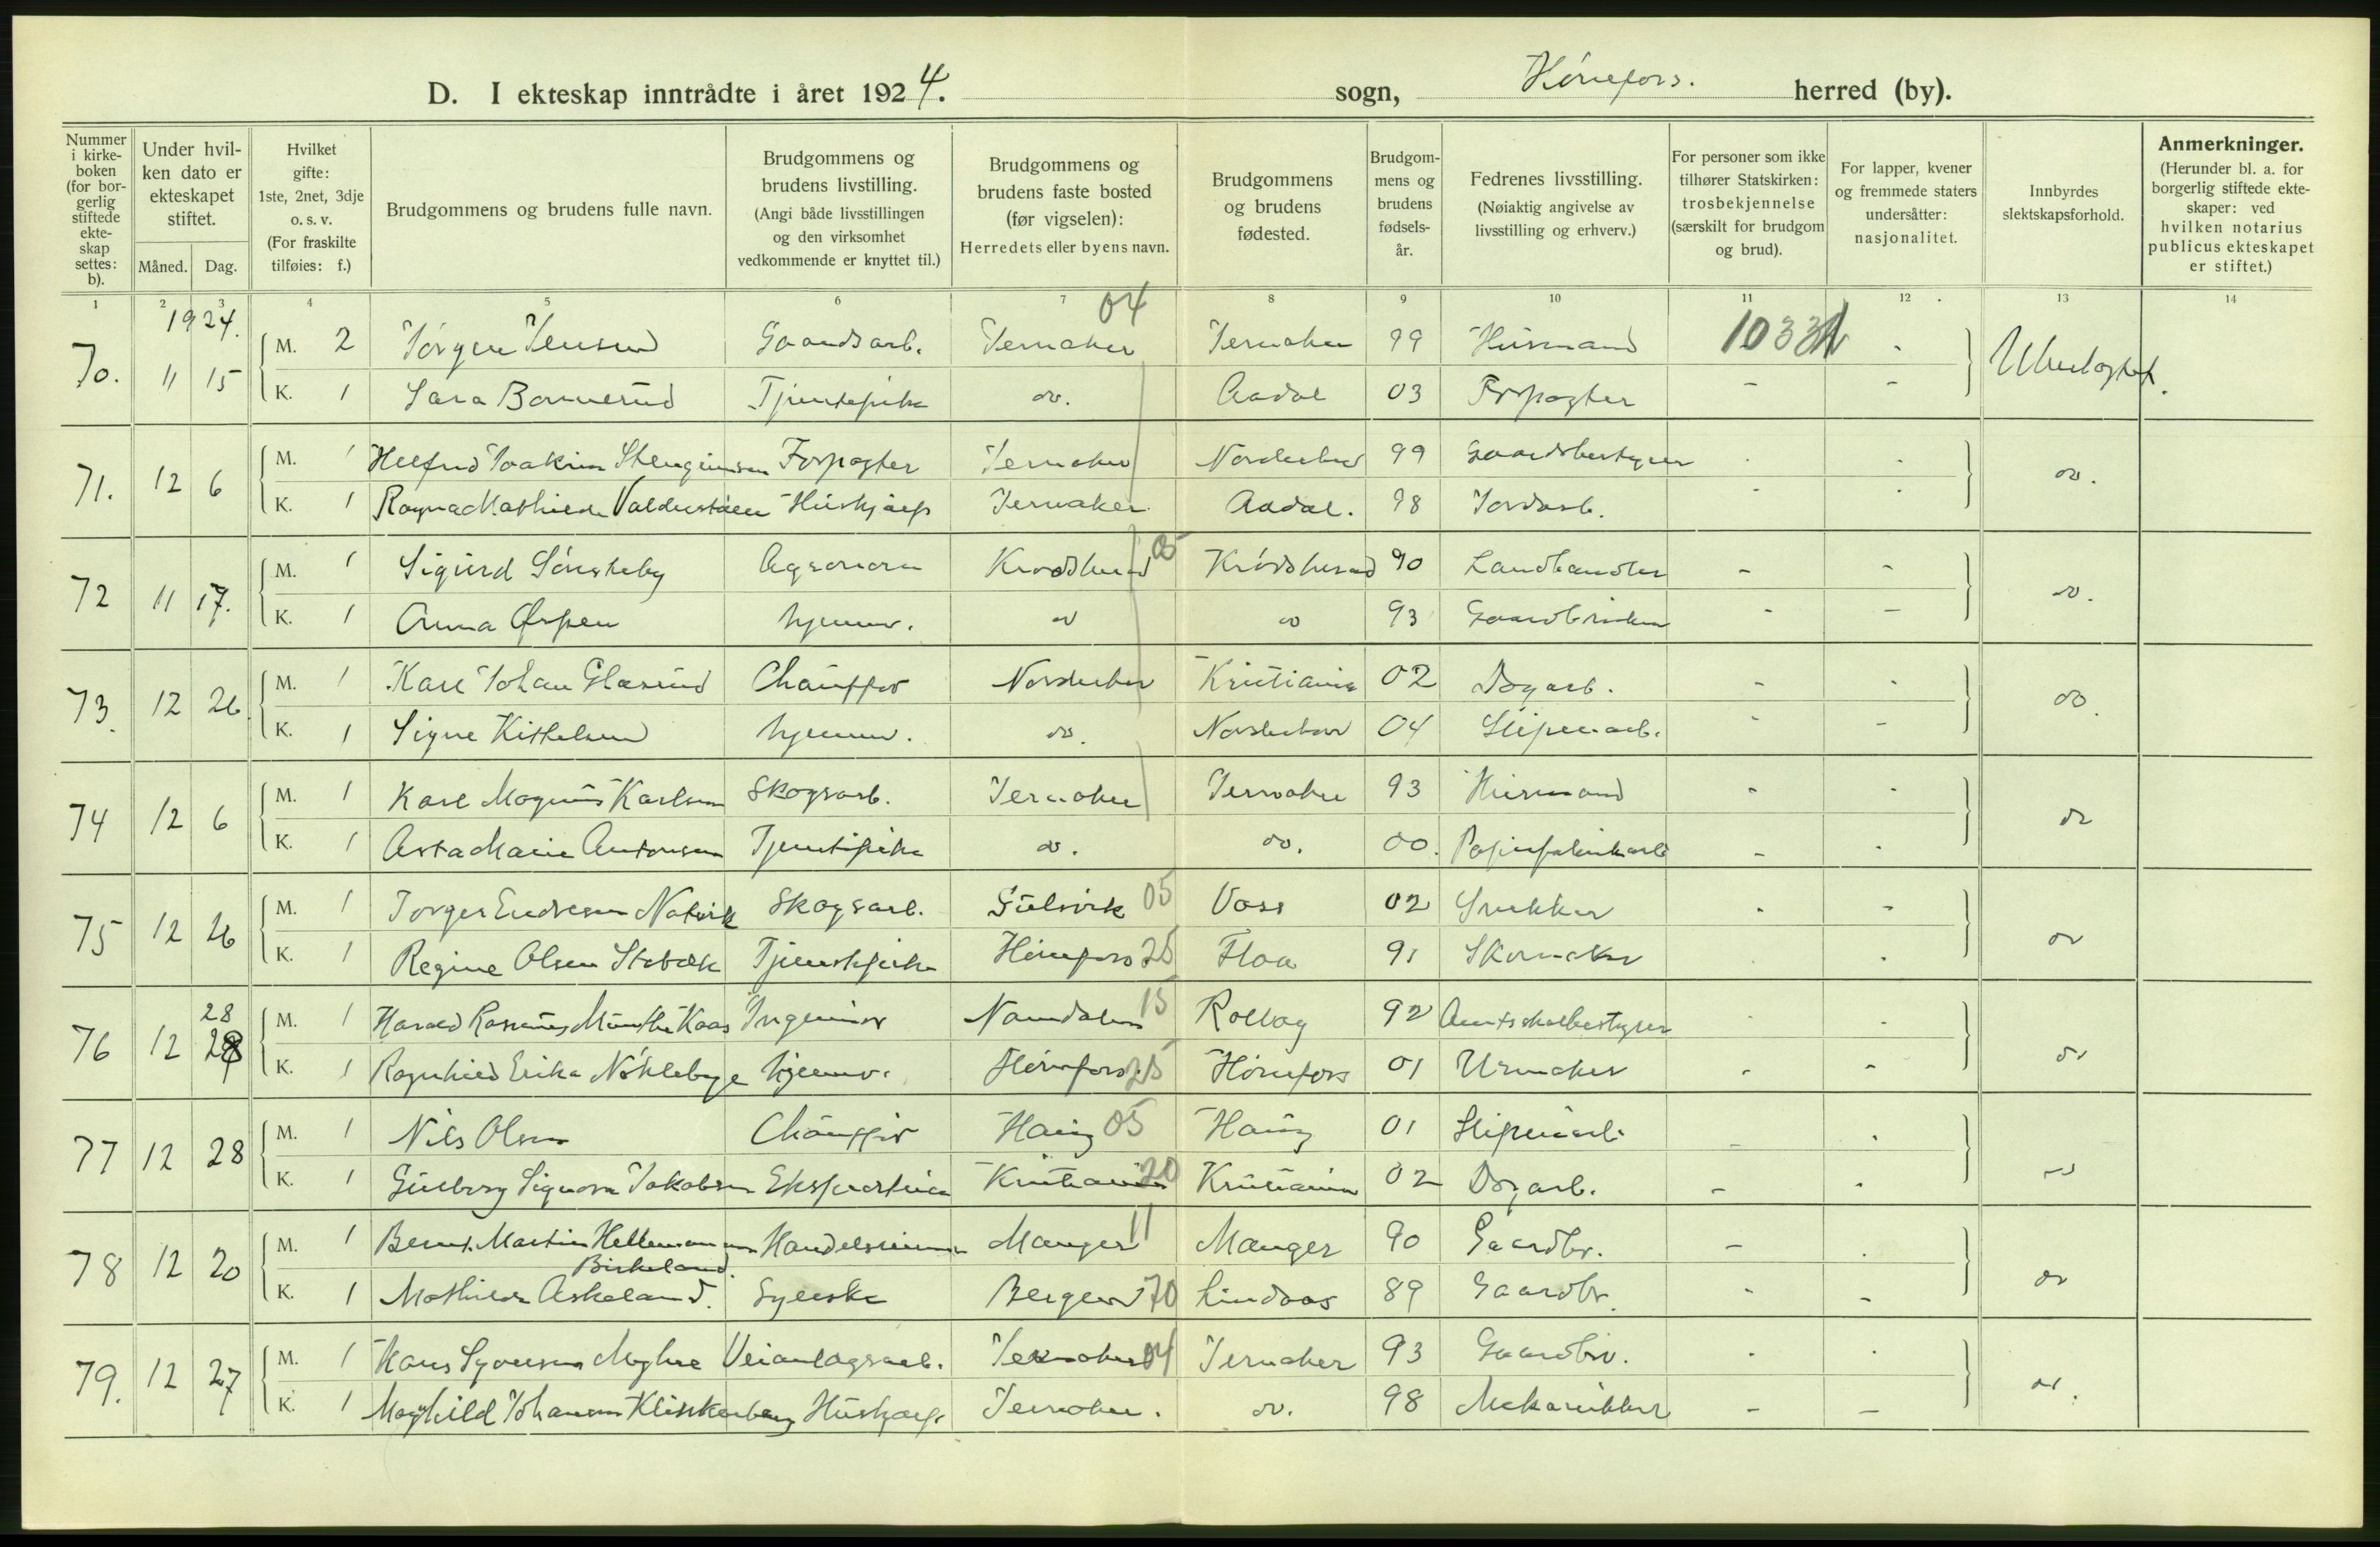 D. I ekteskap inntrådte i året 1924. sogn, Hönefoss. herred (by).
Nummer i kirke-boken (for bor-gerlig stiftede ekte-skap settes: b).
Under hvil-ken dato er ekteskapet stiftet.
Måned. Dag.
Hvilket gifte: 1ste, 2net, 3dje o. s. v. (For fraskilte tilføies: f.)
Brudgommens og brudens fulle navn.
Brudgommens og brudens livstilling. (Angi både livsstillingen og den virksomhet vedkommende er knyttet til.)
Brudgommens og brudens faste bosted (før vigselen): Herredets eller byens navn.
Brudgommens og brudens fødested.
Brudgom-mens og brudens fødsels-år.
Fedrenes livsstilling. (Nøiaktig angivelse av livsstilling og erhverv.)
For personer som ikke tilhører Statskirken: trosbekjennelse (særskilt for brudgom og brud).
For lapper, kvener og fremmede staters undersåtter: nasjonalitet.
Innbyrdes slektskapsforhold.
Anmerkninger. (Herunder bl. a. for borgerlig stiftede ekte-skaper: ved hvilken notarius publicus ekteskapet er stiftet.)
1 2 3 4 5 6 7 8 9 10 11 12 13 14
1924. 04
70. 11 15 M. 2 Jörgen Jensen Gaardsarb. Jevnaker Jevnaker 99 Husmand - Ubeslegtet.
K. 1 Sara Bonnerud Tjenstepike do. Aadal 03 Forpagter - -
71. 12 6 M. 1 Helfred Joakim Forpagter Jevnaker Norderhov 99 Gaardsbestyrer - - do.
K. 1 Ragna Mathilde Hushjælp Jevnaker Aadal. 98 Jordarb. - -
72 11 17. M. 1 Sigurd Sönsteby Agronom Krødsherad 05 Krödsherad 90 Landhandler - - do.
K. 1 Anna Ørpen hjemmv. do do 93 Gaardbruker - -
73. 12 26. M. 1 Karl Johan Glæsrud Chauffør Norderhov Kristiania 02 Dagarb. - - do.
K. 1 Signe Kittelsen hjemmv. do. Norderhov 04 Sliperiarb. - -
74 12 6 M. 1 Karl Magnus Karlsen Skogsarb. Jevnaker Jevnaker 93 Husmand - - do
K. 1 Asta Marie Antonsen Tjenstepike do. do. 00. Papirfabrikarb - -
75 12 26 M. 1 Torger Endresen Skogsarb. Gulsvik 05 Voss 02 Snekker - - do
K. 1 Regine Olsen Stabæk Tjenstepike Hönefoss 25 Flaa 91 Skomaker - -
76 12 28 28 M. 1 Harald Rasmus Munthe Kaas Ingeniør Namdalen 15 Rollag 92 Amtsskolebestyrer - - do
K. 1 Ragnhild Erika Nökleby hjemmv. Hönefoss 25 Hönefoss 01 Urmaker - -
77 12 28 M. 1 Nils Olsen Chauffør Haug 05 Haug 01 Sliperiarb. - - do
K. 1 Gudborg Signora Jakobsen Ekspeditrice Kristiania 20 Kristiania 02 Dagarb. - -
78 12 20 M. 1 Bernt. Martin Birkeland. Manger 11 Manger 90 Gaardbr. - - do
K. 1 Mathilde Askeland. Syerske Bergen 70 Lindaas 89 Gaardbr. - -
79. 12 27 M. 1 Hans Syversen Myhre Veianlægsarb. Jevnaker 04 Jevnaker 93 Gaardbr. - - do.
K. 1 Maghild Johansen Klinkenberg Hushjælp. Jevnaker. do. 98 Mekanikker - -